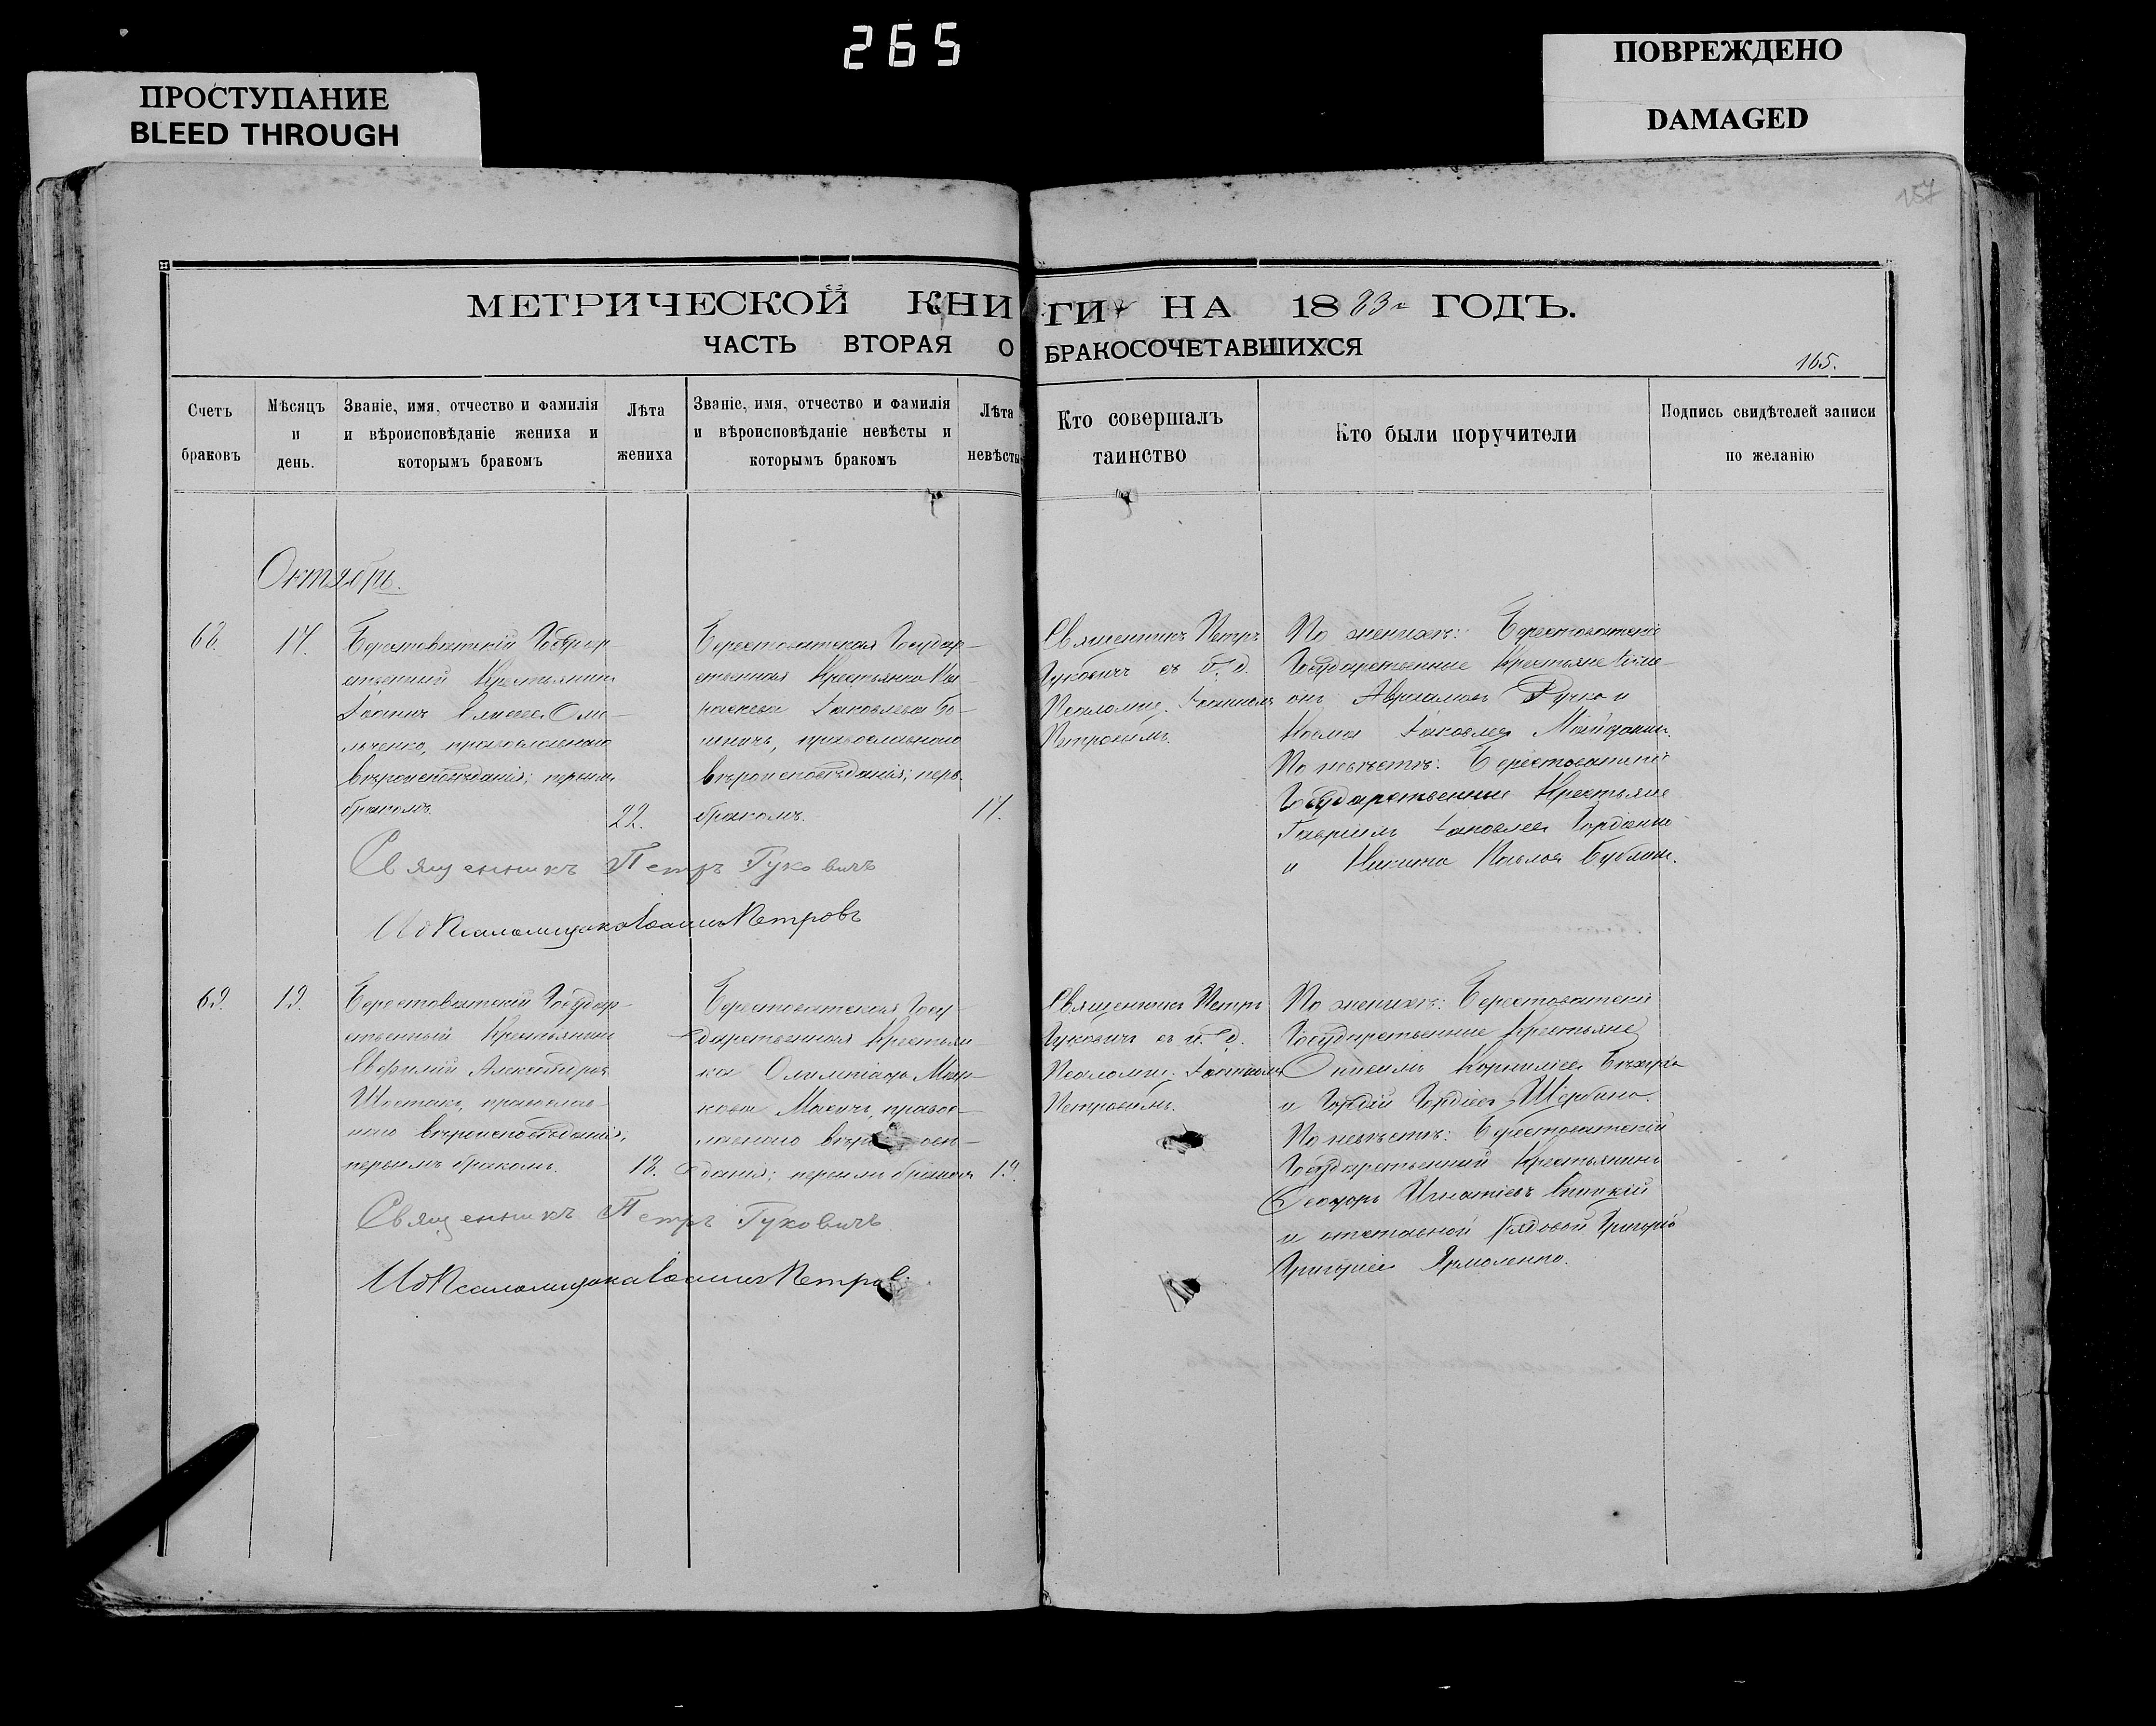 265
ПРОСТУПАНИЕ
BLEED THROUGH
ПОВРЕЖДЕНО
DAMAGED
157
МЕТРИЧЕСКОЙ КНИГИ НА 1883 г ГОДЪ.
ЧАСТЬ ВТОРАЯ О БРАКОСОЧЕТАВШИХСЯ
165.
Счетъ
браковъ
Мѣсяцъ
и
день.
Званіе, имя, отчество и фамилія
и вѣроисповѣданіе жениха и
которымъ бракомъ
Лѣта
жениха
Званіе, имя, отчество и фамилія
и вѣроисповѣданіе невѣсты и
которымъ бракомъ
Лѣта
невѣсты
Кто совершалъ
таинство
Кто были поручители
Подпись свидѣтелей записи
по желанію
Октябрь.
68.
17.
Берестоватскій Государ
ственный Крестьянинъ
Іоаннъ Олі-
ьченко, православнаго
вѣроисповѣданія; первымъ
бракомъ.
22.
Берестоватская Государ-
ственная Крестьянка
Іаковлева
православнаго
вѣроисповѣданія; перв.
бракомъ.
17.
Священникъ Петръ
Гуковичъ съ и. д.
Псаломщ. Іоанномъ
Петровымъ.
По женихѣ: Берестоватскіе
Государственные Крестьяне
онъ Авраамовъ Ручка и
Козма Іаковлев
По невѣстѣ: Берестоватскіе
Государственные Крестьяне
Гавріилъ Іаковлев
и Никита Павлов
Священникъ Петръ Гуковичъ
И д Псаломщика Іоаннъ Петровъ
69.
19.
Берестоватскій Государ-
ственный Крестьянинъ
Евфимій
Шостакъ, православ-
наго вѣроисповѣданія,
первымъ бракомъ.
18.
Берестоватская Госу-
дарственная Крестьян-
ка Олимпіада Мар-
кова правос-
лавнаго
данія; первымъ бракомъ
19.
Священникъ Петръ
Гуковичъ съ и. д.
Псаломщ. Іоанномъ
Петровымъ.
По женихѣ: Берестоватскіе
Государственные Крестьяне
Онисимъ Корниліев
и Гордій Гордіев Щербина.
По невѣстѣ: Берестоватскій
Государственный Крестьянинъ
Феодоръ Игнатіевъ
и отставной рядовой Григорій
Григоріев Ярмоленко.
Священникъ Петръ Гуковичъ
И д Псаломщика Іоаннъ Петров.